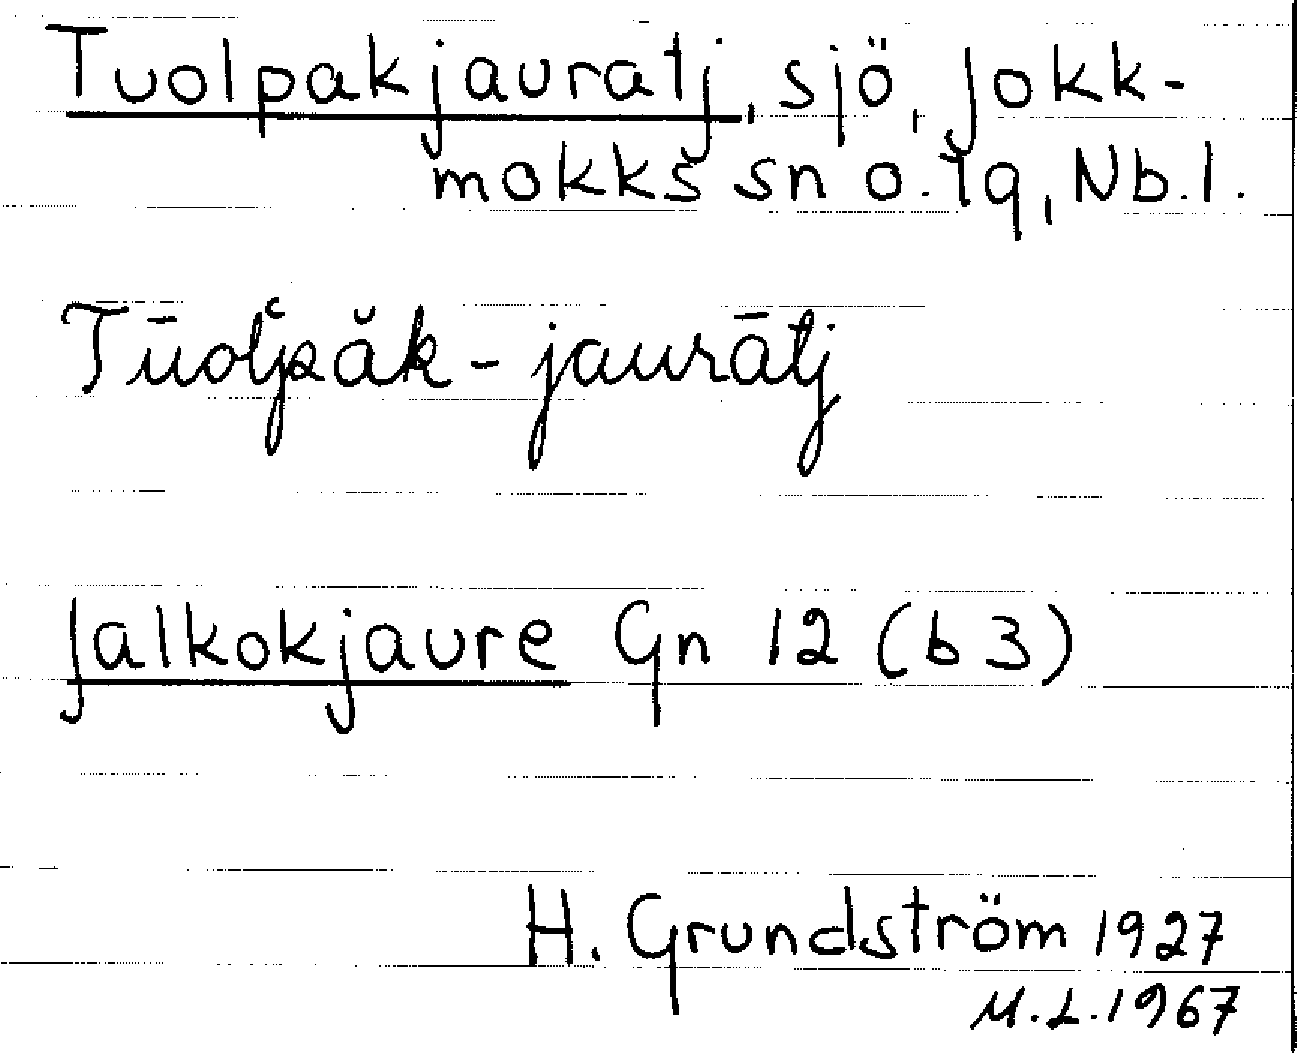 Tuolpakjauratj, sjö, Jokk-
mokks sn o. tg, Nb.l.
Tūoľpăk-jaurātj
Jalkokjaure Gn 12 (b3)
H. Grundström 1927
M.L.1967